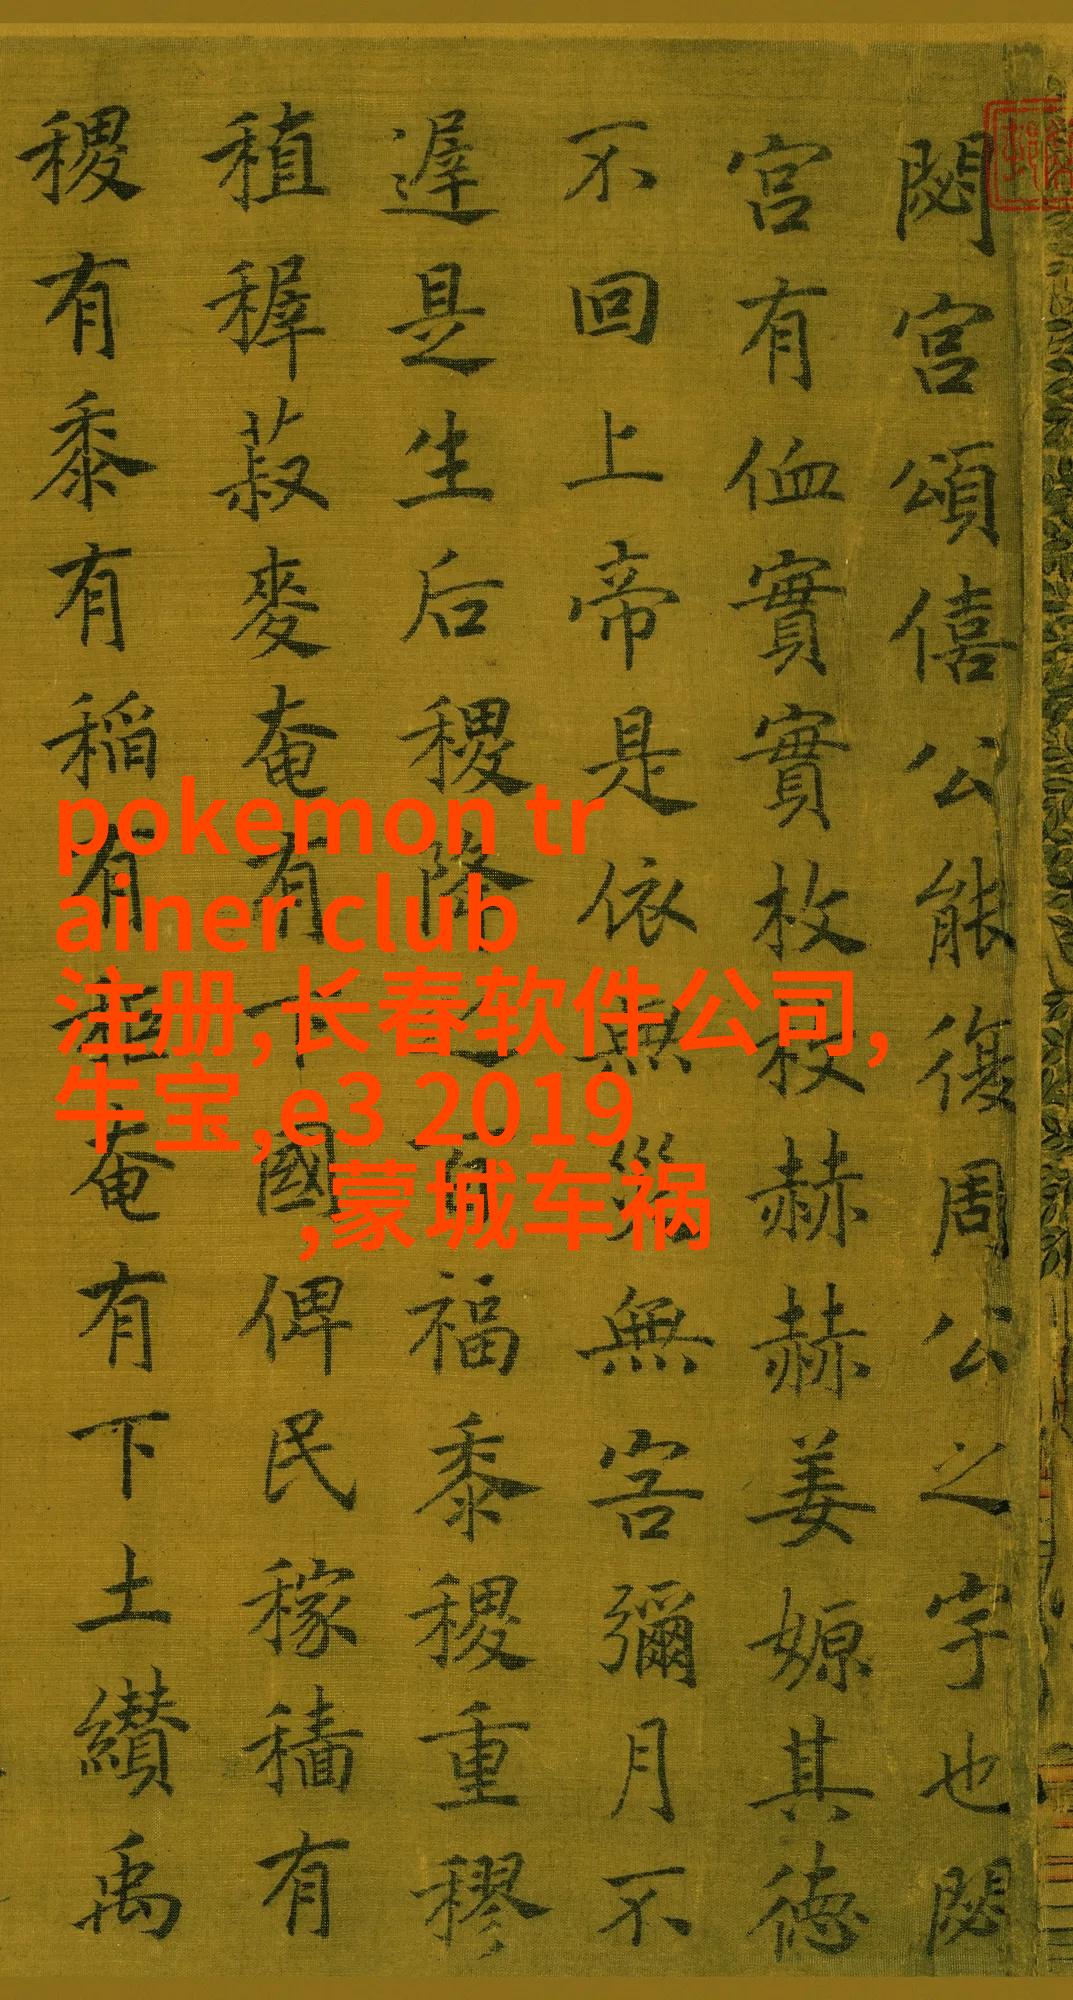 閟宮頌僖公能復周公之宇也閟
宮有侐實實枚枚赫赫姜嫄其德
不回上帝是依無災無害彌月不
遟是生后稷降之百福黍稷重穋
稙稺菽麥奄有下國俾民稼穡有
稷有黍有稻有秬奄有下土纘禹
pokemon tr
ainer club
注册,长春软件公司,
牛宝,e3 2019
,蒙城车祸